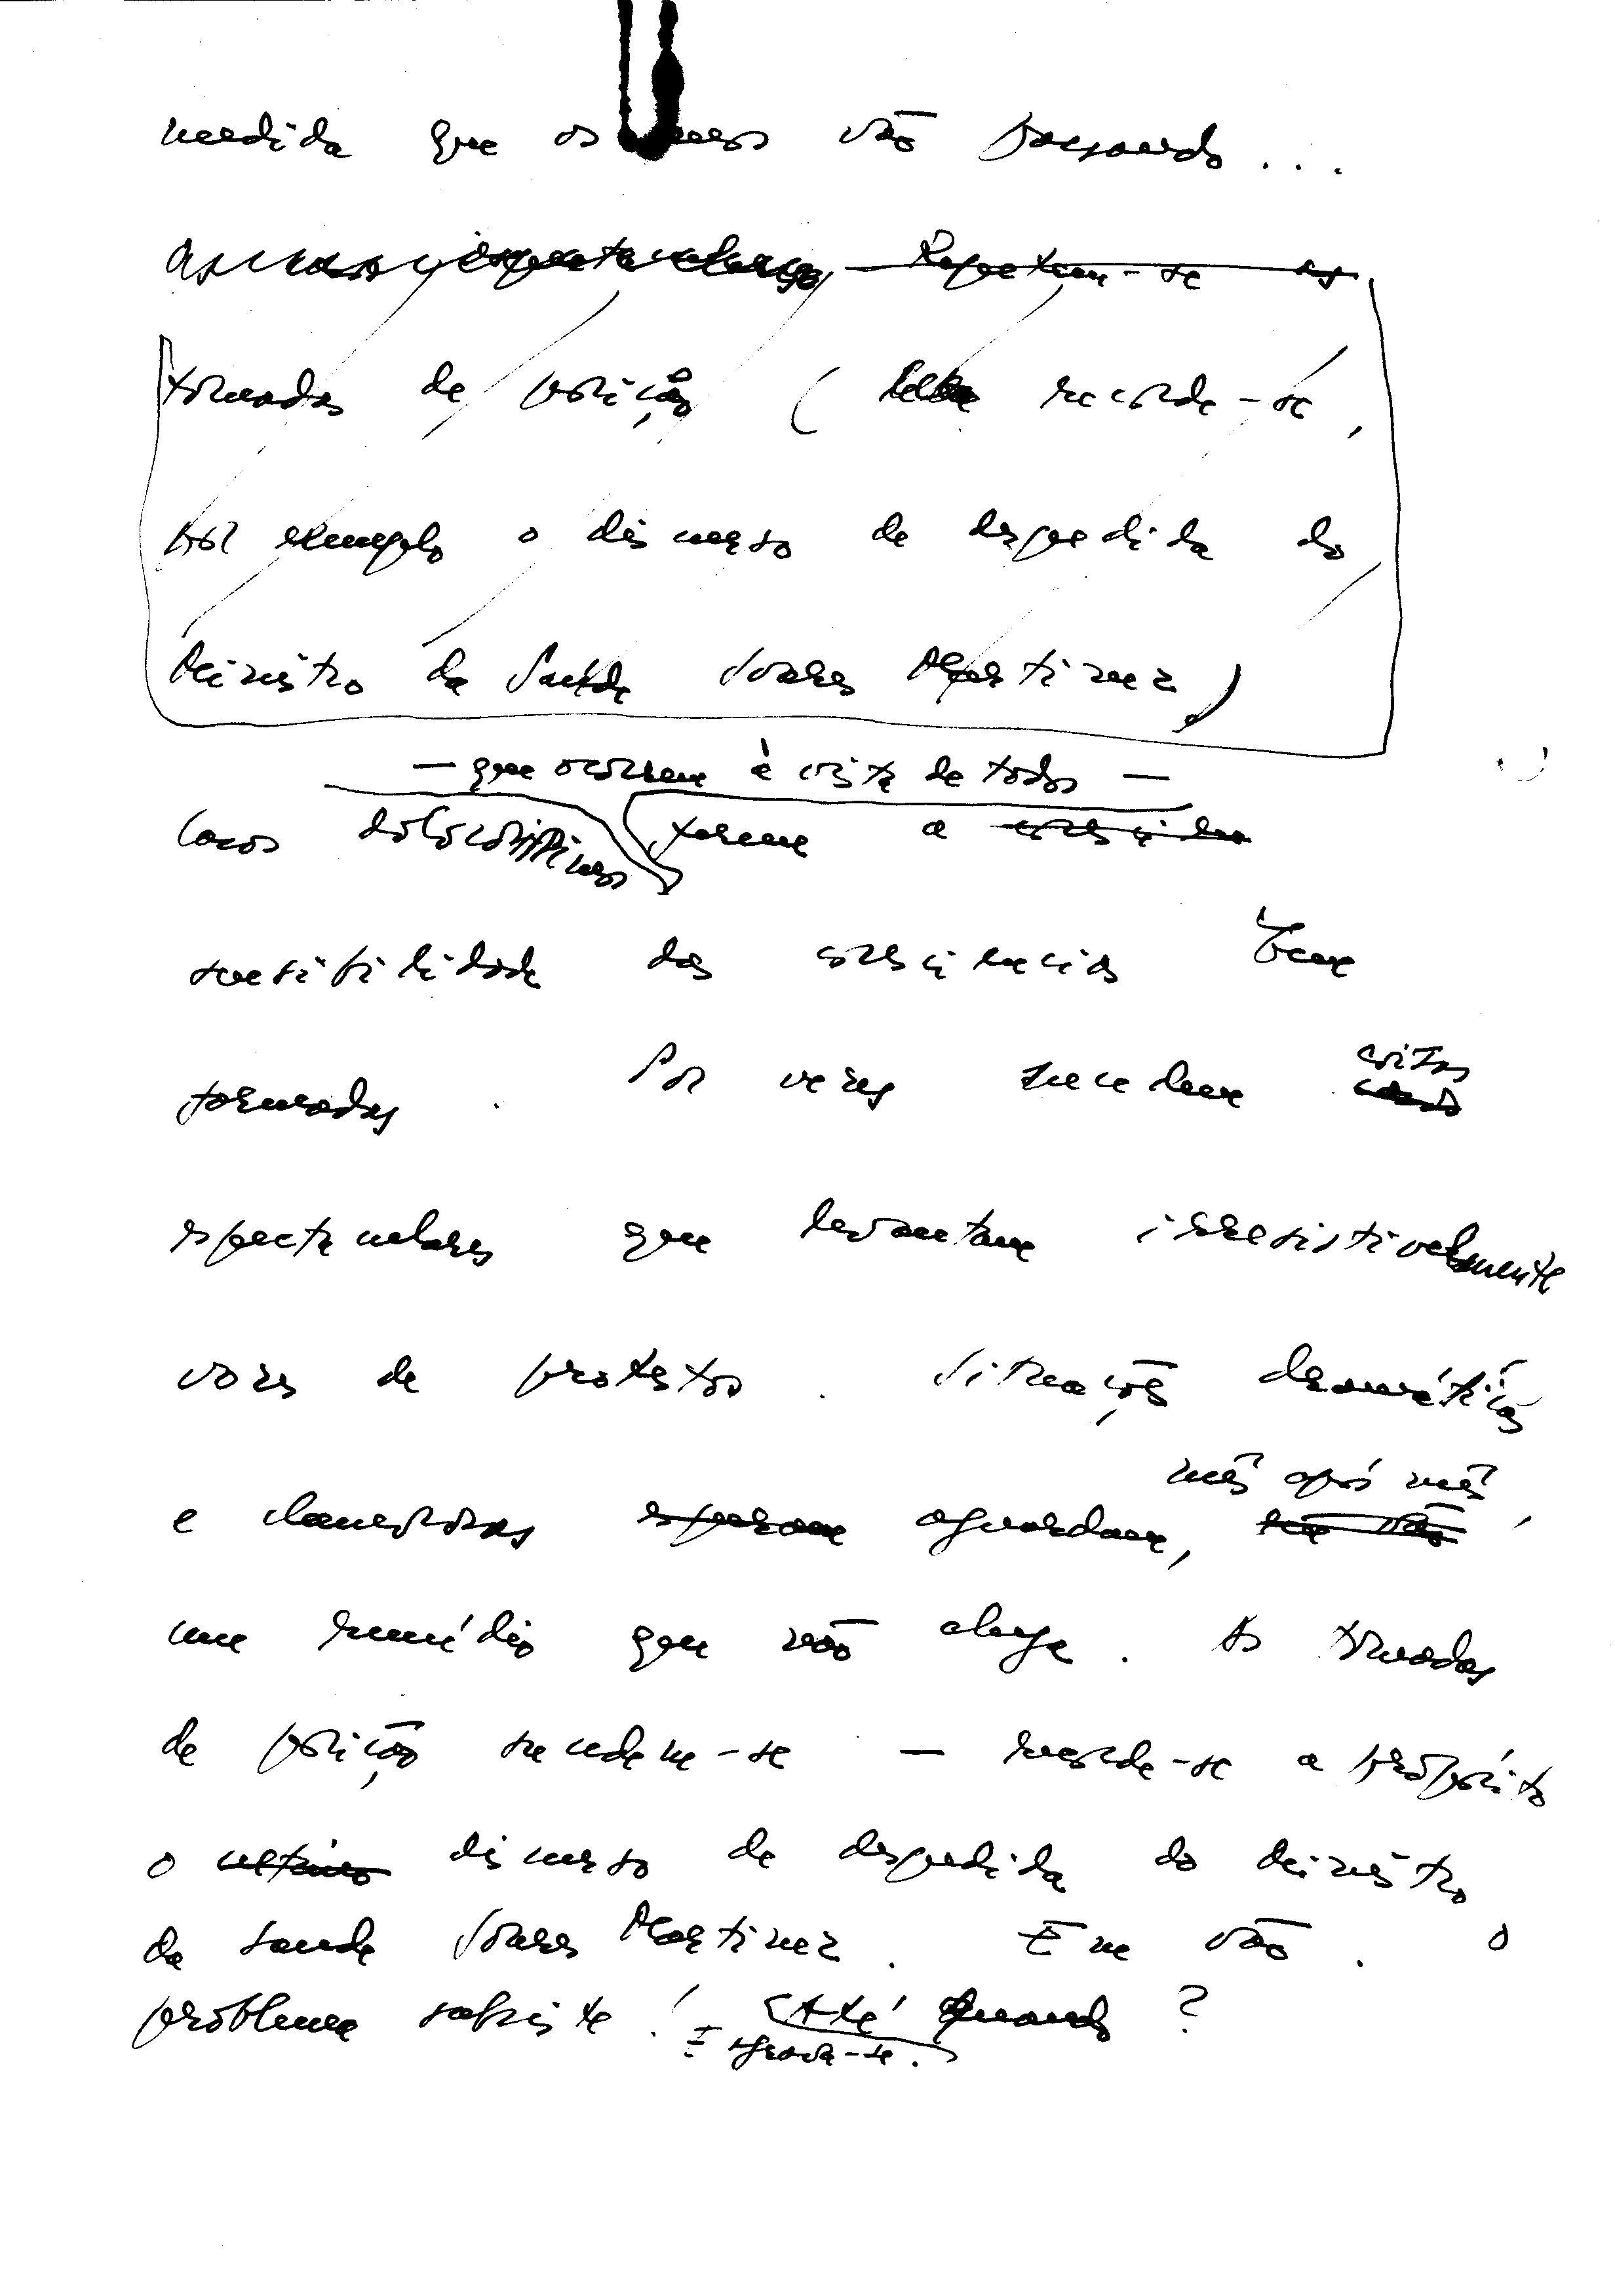 medida que os anos vão passando...
Repetem-se as
tomadas de posição ( recorde-se,
por exemplo o discurso de despedida do
Ministro da Saúde Soares Martinez)
— que ocorrem à vista de todos —
Casos dolorosíssimos ferem a
sensibilidade das consciências bem
formadas. Por vezes sucedem coisas
espectaculares que levantam irresistivelmente
vozes de protesto. Situações dramáticas
mês após mês
e clamorosas esperam aguardam,
um remédio que não chega. As tomadas
de posição sucedem-se — recorde-se a propósito
o último discurso de despedida do Ministro
da Saude Soares Martinez. Em vão. O
problema subsiste! Até quando?
E agrava-se.